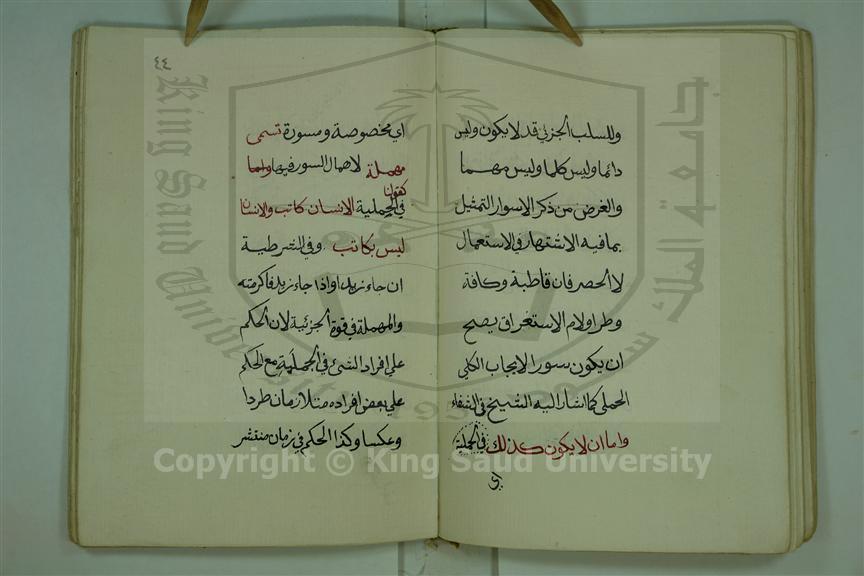 وللسلب الجزئي قد لا يكون وليس
دائما وليس كلما وليس مهما
والغرض من ذكر الاسوار التمثيل
بما فيه الاشتهار في الاستعمال
لا الحصر فان قاطبة وكافة
وطرا ولام الاستغراق يصح
ان يكون سور الايجاب الكلي
الحملي كما اشار اليه الشيخ في الشفاء
واما ان لا يكون كذلك في الحملية
اي
٤٤
اي مخصوصة ومسورة تسمى
مهملة لاهمال السور فيها واما
كقولنا
في الحملية الانسان كاتب والانسان
ليس بكاتب وفي الشرطية
ان جاء زيد او اذا جاء زيد فاكرمته
والمهملة في قوة الجزئية لان الحكم
على افراد الشيء في الجملية مع الحكم
على بعض افراده متلازمان طردا
وعكسا وكذا الحكم في زمان منتشر
King Saud University
جامعة الملك سعود
1957
Copyright © King Saud University